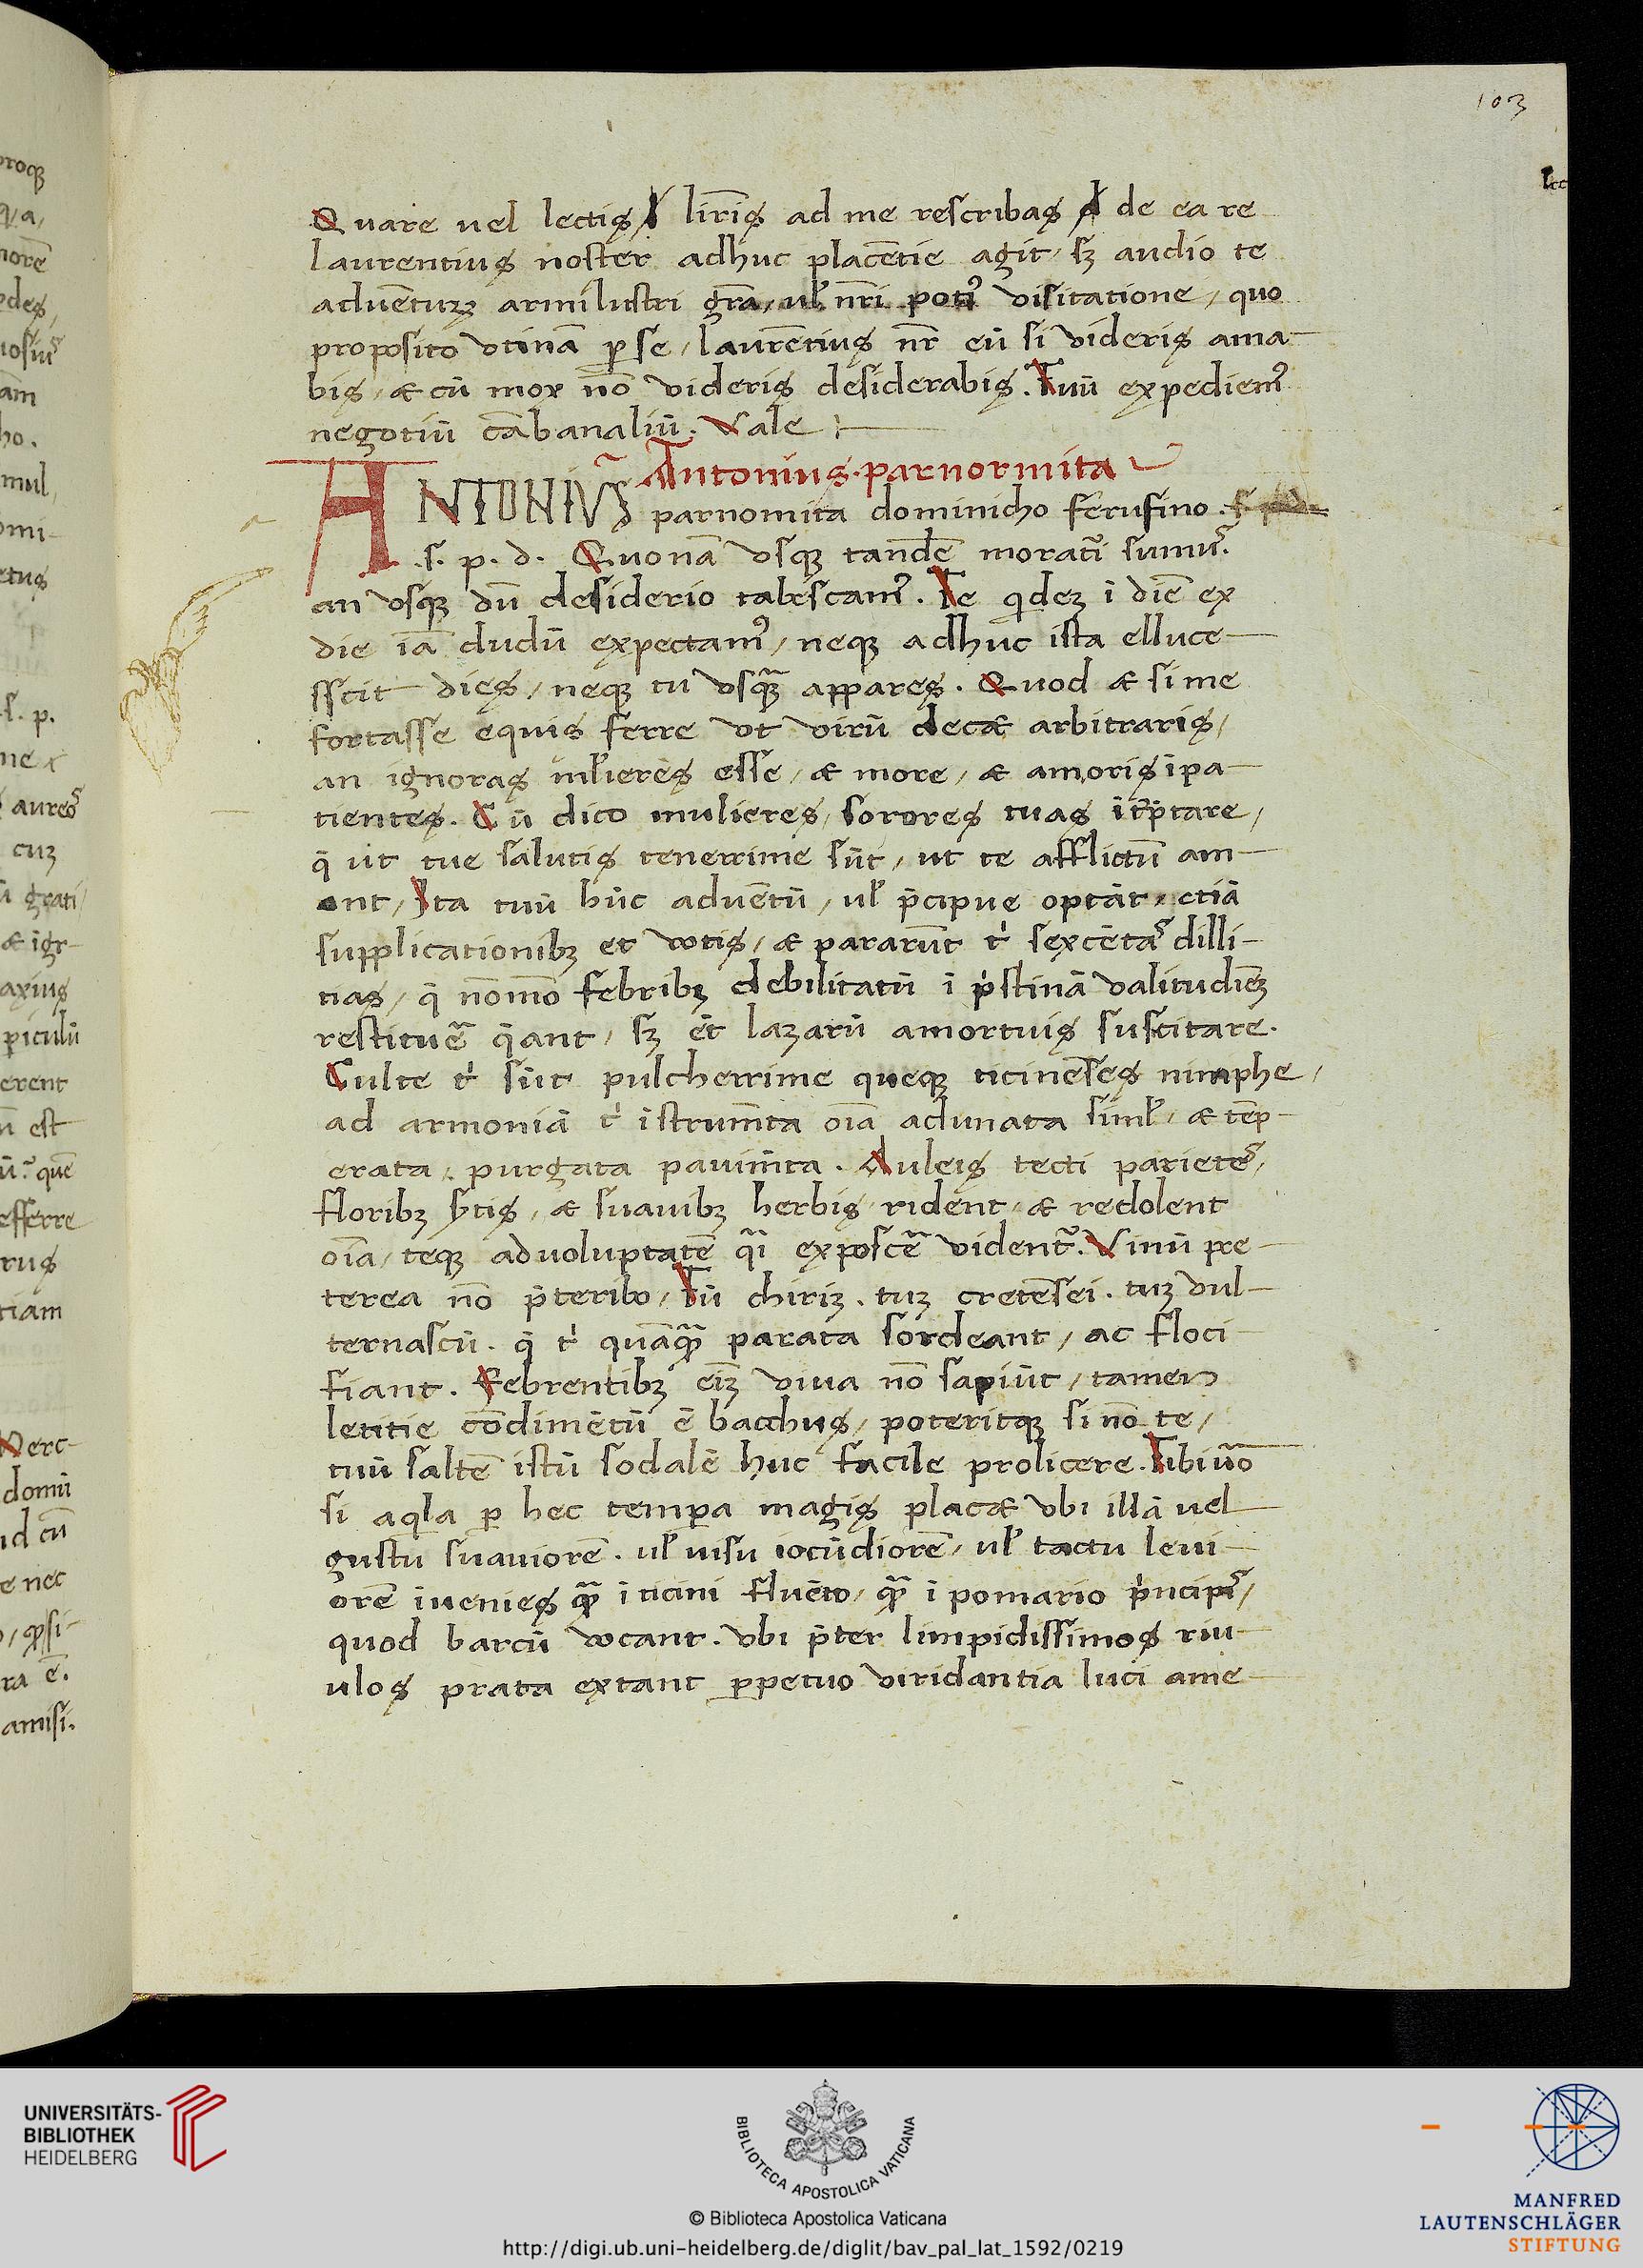 103
Quare uel lectis lr̄is ad me rescribas de ea re
laurentius noster adhuc placētie agit, sꝫ audio te
aduēturꝫ armilustri gr̄a, ul' nr̄i potꝰ visitatione, quo
proposito vtinā ꝑse, laurētius nr̄ eū si videris ama
bis, & cū mox nō videris desiderabis. Tuū expediemꝰ
negotiū cābanaliū. Vale
Antonius parnormita
ANTONIVS parnomita dominicho ferufino.
.s. p. d. Quonā vsqꝫ tandē moratī sumꝰ.
an vsqꝫ dū desiderio tabescamꝰ. Te qidez i diē ex
die iā dudū expectamꝰ, neqꝫ adhuc ista elluce
sscit dies, neqꝫ tu vsqꝫ appares. Quod & si me
fortasse equis ferre vt virū decet arbitraris,
an ignoras ml'ieres esse, & more, & amoris ipa
tientes. Cū dico mulieres, sorores tuas iterp̄tare,
q̄ ut tue salutis tenerrime sūt, ut te afflictū am
ant, Ita tuū hūc aduētū, ul' p̄cipue optāt, etiā
supplicationibꝫ et votis, & pararūt tⁱ sexcētas dilli
tias, q̄ nōmō febribꝫ debilitatū i p̄stinā valitudinē
restituē q̄ant, sꝫ ēt lazarū amortuis suscitare.
Culte tⁱ sūt pulcherrime queqꝫ ticinēses nimphe,
ad armoniā tⁱ istrumēta oīa adunata siml', & tēp
erata, purgata pauimēta. Auleis tecti parietes,
floribꝫ sertis, & suauibꝫ herbis, rident, & redolent
oīa, teqꝫ aduoluptatē q̄i exposcē videntur. Vinū pre
terea nō p̄teribo, Tū chiriz. tuꝫ cretēsei. tuꝫ vul
ternascū. q̄ tⁱ quāqꝫ parata sordeant, ac floci
fiant. Febrentibꝫ eīꝫ viua nō sapiūt, tamen
letitie cōdimētū ē bacchus, poteritqꝫ si nō te,
tuū saltē istū sodalē huc facile prolicere. Tibi uo
si aqla ꝑ hec tempa magis placet vbi illā uel
gustu suauiorē. ul' uisu iocūdiorē, ul' tactu leui
orē iuenies quā i ticini fluēto, quā i pomario p̄ncipis,
quod barcū vocant. vbi p̄ter limpidissimos riu
ulos prata extant ꝑpetuo viridantia luci ame
UNIVERSITÄTS-
BIBLIOTHEK
HEIDELBERG
BIBLIOTECA APOSTOLICA VATICANA
© Biblioteca Apostolica Vaticana
http://digi.ub.uni-heidelberg.de/diglit/bav_pal_lat_1592/0219
MANFRED
LAUTENSCHLÄGER
STIFTUNG